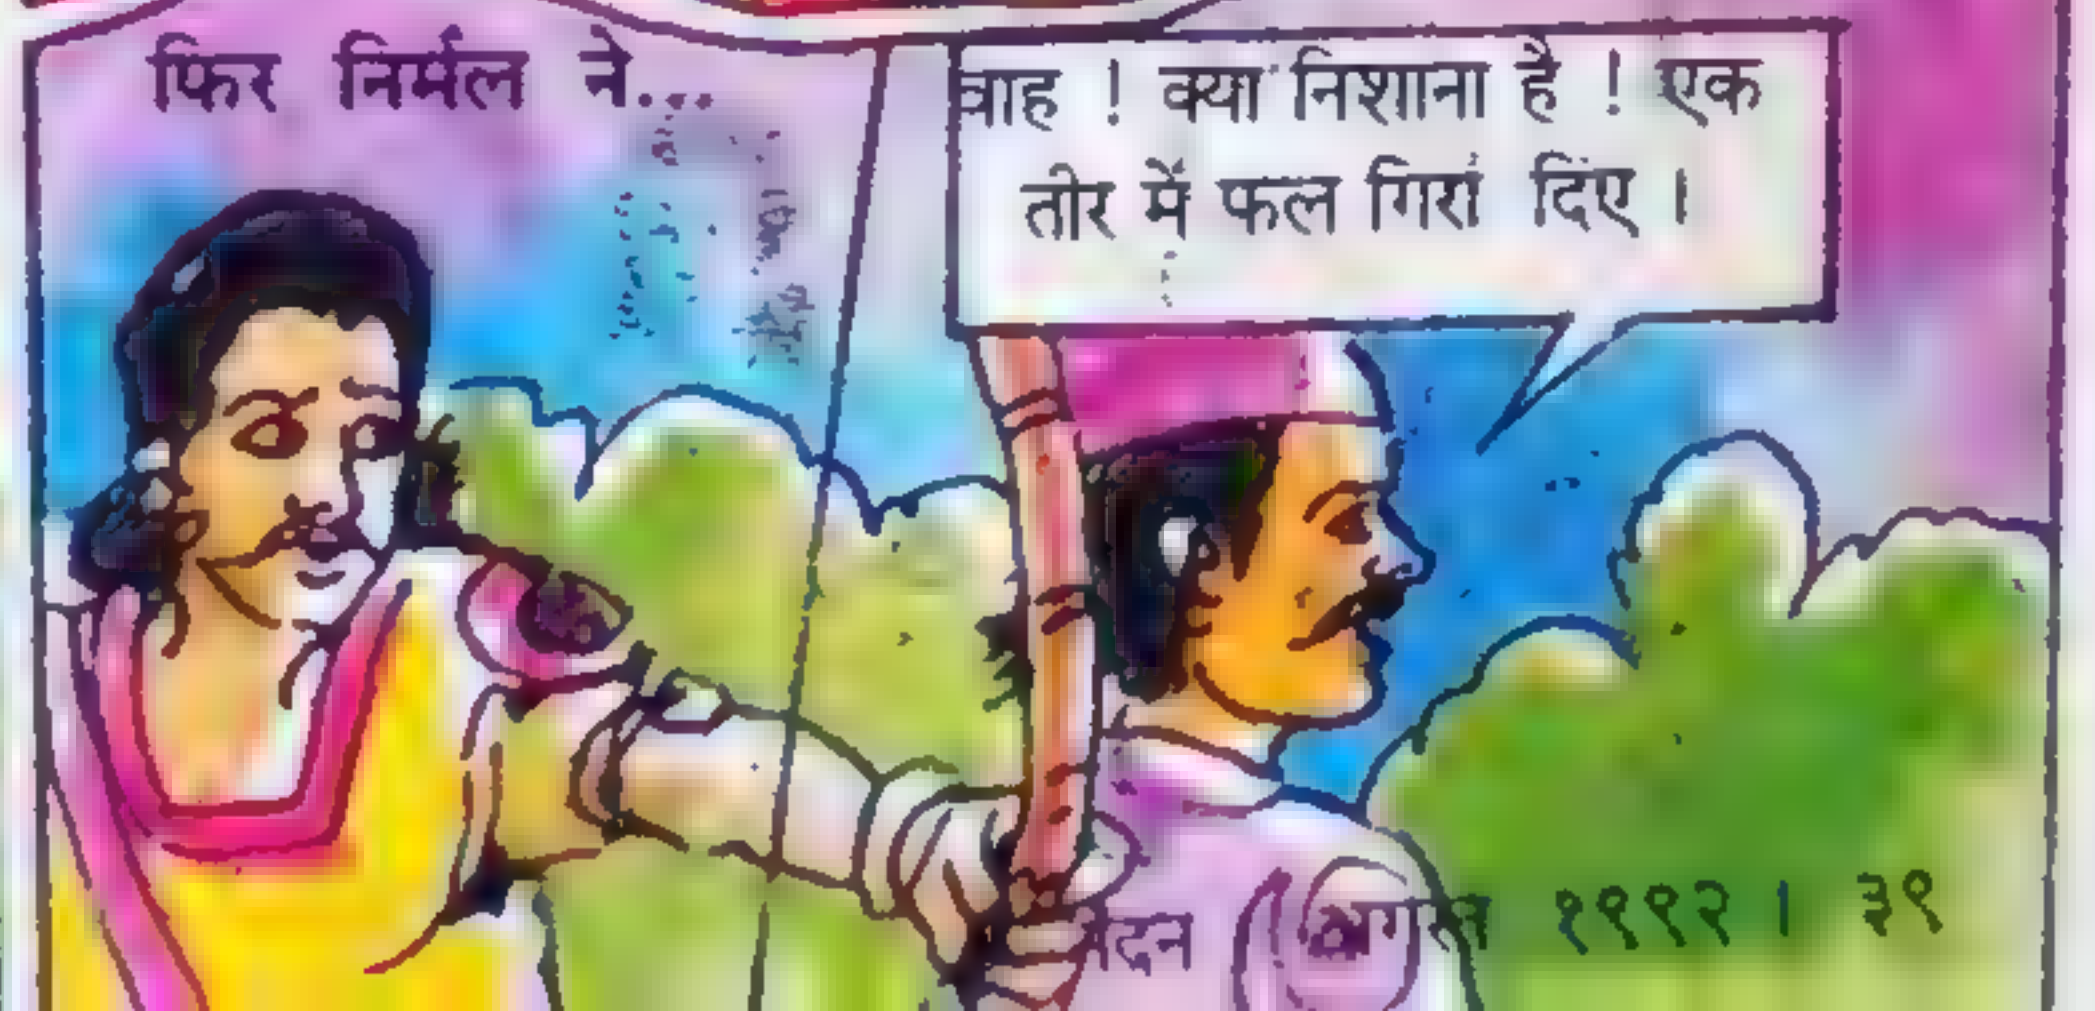 फिर निर्मल ने...
वाह ! क्या निशाना है ! एक
तीर में फल गिरा दिए ।
अगस्त १९९२ । ३९